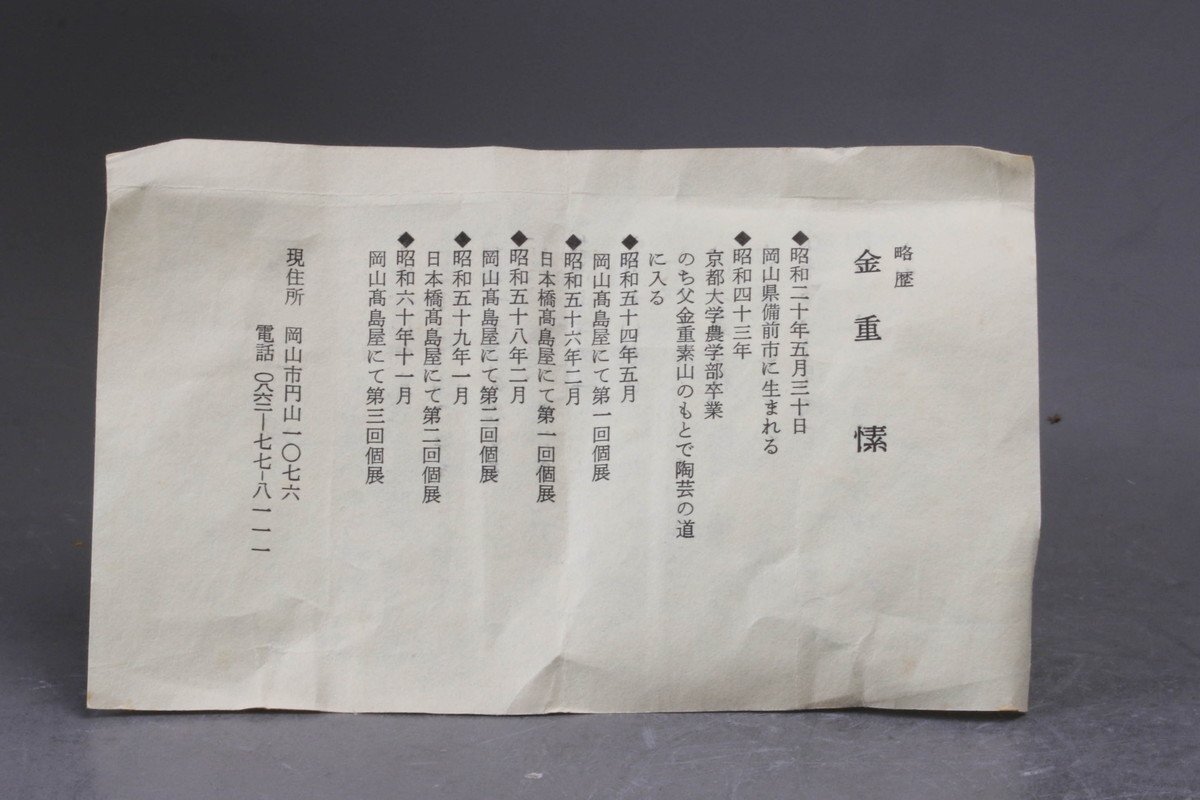 略歴
金重愫
◆昭和二十年五月三十日
岡山県備前市に生まれる
◆昭和四十三年
京都大学農学部卒業
のち父金重素山のもとで陶芸の道
に入る
◆昭和五十四年五月
岡山髙島屋にて第一回個展
◆昭和五十六年二月
日本橋髙島屋にて第一回個展
◆昭和五十八年二月
岡山髙島屋にて第二回個展
◆昭和五十九年一月
日本橋髙島屋にて第二回個展
◆昭和六十年十一月
岡山髙島屋にて第三回個展
現住所 岡山市円山一〇七六
電話 〇八六二―七七―八一一一